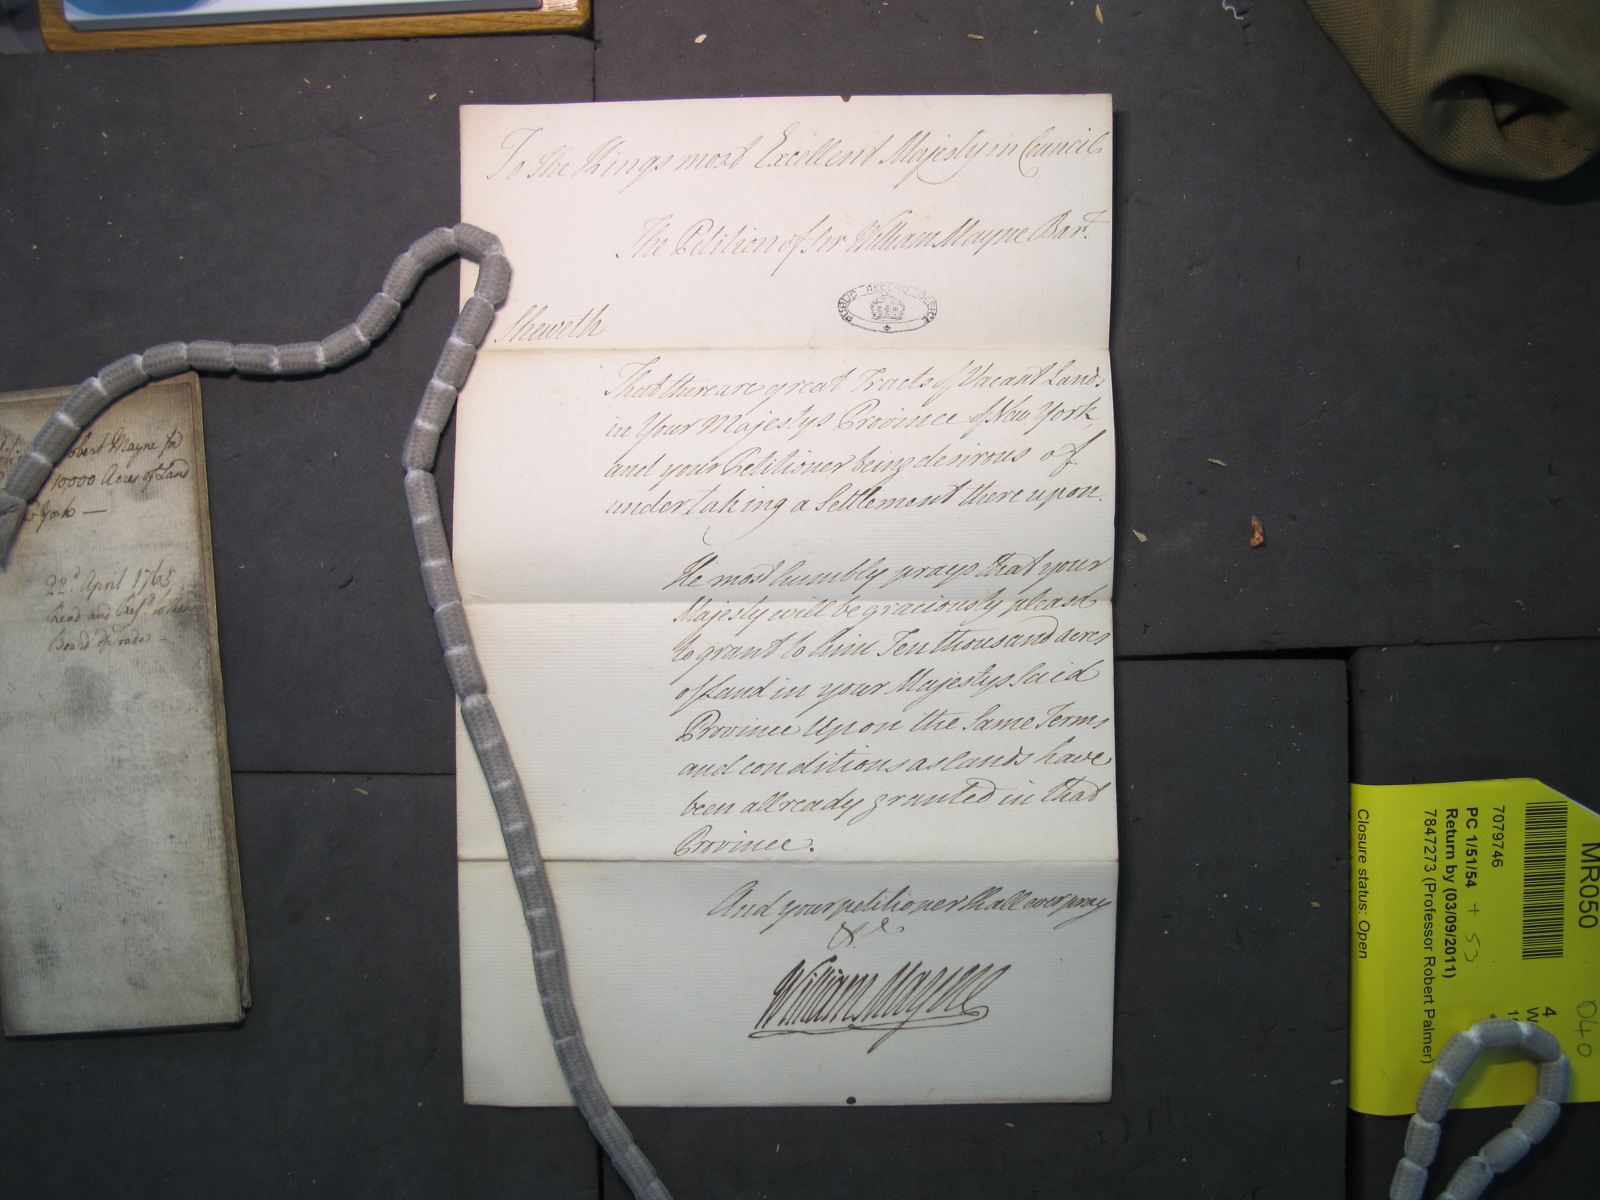 To The Kings most Excellent Majesty in Council
The Petition of Sir William Mayne Bart.
PUBLIC RECORD OFFICE
Sheweth
That there are great Tracts of Vacant Lands
in Your Majestys Province of New York,
and your Petitioner being desirous of
undertaking a Settlement there upon.
He most humbly prays that your
Majesty will be graciously pleased
to grant to him Ten thousand acres
of Land in your Majestys Said
Province Upon the Same Terms
and conditions as lands have
been allready granted in that
Province.
And your petitioner shall ever pray
&c
William Mayne
obert Mayne for
10,000 Acres of Land
York —
22d April 1765
Read and Refd. to the
Board of Trade —
MR050
040
7079746
PC 1/51/54 + 53
Return by (03/09/2011)
7847273 (Professor Robert Palmer)
Closure status: Open
4
W